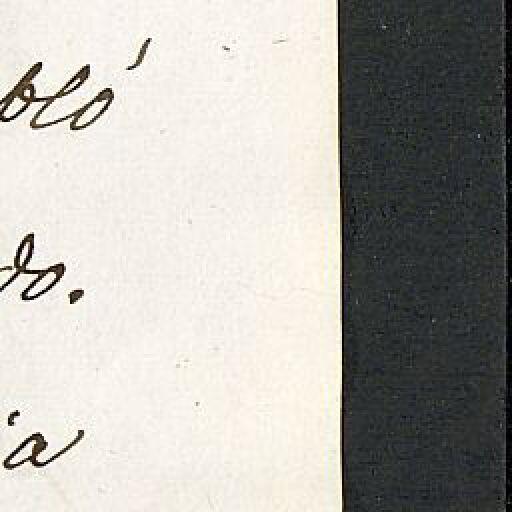 bló
do.
ia